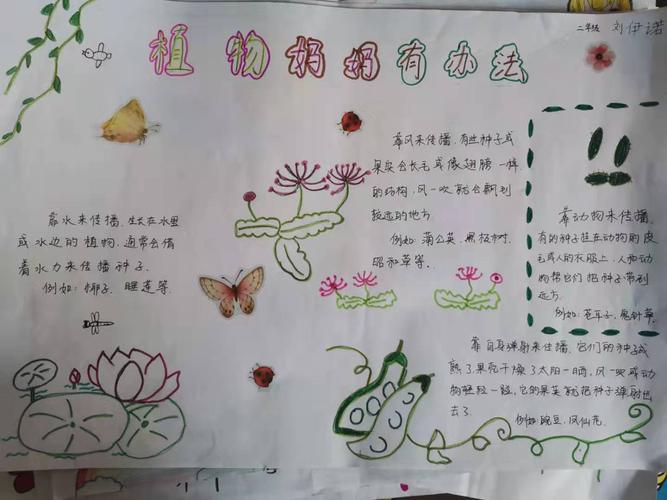 植物妈妈有办法
二年级 刘伊诺
靠风来传播,有些种子或
果实会长毛或像翅膀一样
的结构,风一吹就会飘到
较远的地方
例如:蒲公英、黑板树、
昭和草等.
靠水来传播,生长在水里
或水边的植物,通常会借
着水力来传播种子.
例如:椰子、睡莲等.
靠动物来传播,
有的种子挂在动物的皮
毛或人的衣服上,人和动
物帮它们把种子带到
远方.
例如:苍耳子,鬼针草.
靠自身弹射来传播,它们的种子成
熟了果荚干燥了太阳一晒,风一吹或动
物轻轻一碰,它的果荚就把种子弹射出
去了.
例如:豌豆,凤仙花.